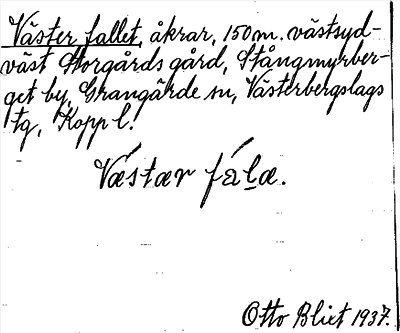 Väster fallet, åkrar, 150 m. västsyd-
väst Storgårds gård, Stångmyrber-
get by, Grangärde sn, Västerbergslags
tg, Kopp l.
Vǽstær fálæ.
Otto Blixt 1937.